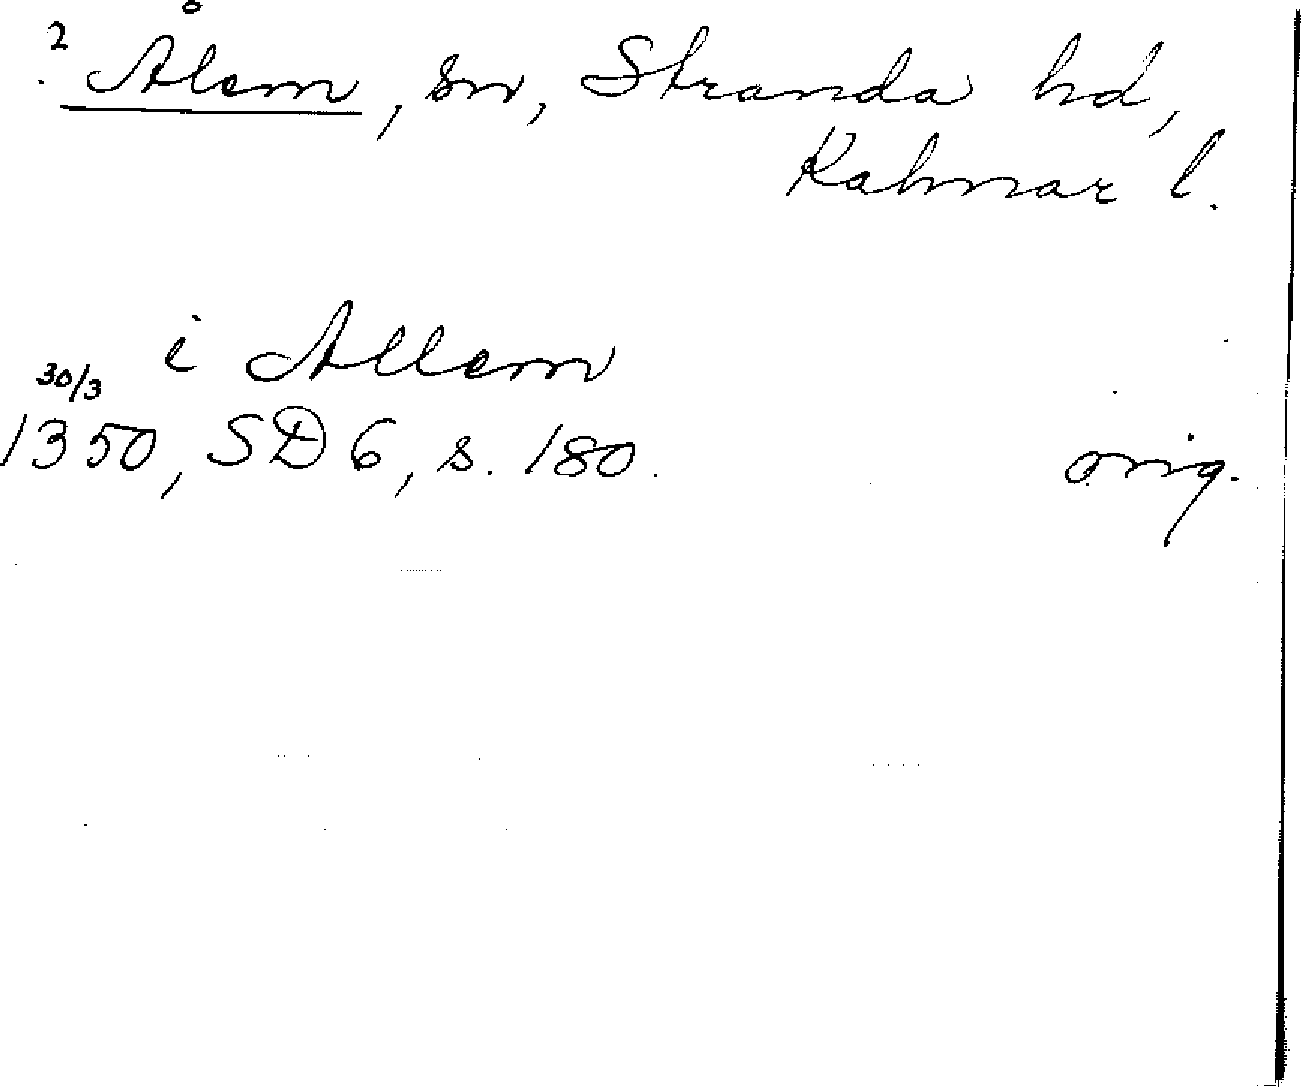 ? Ålem, sn, Stranda hd,
Kalmar l.
i Allem
30/3
1350, SD 6, s. 180. orig.